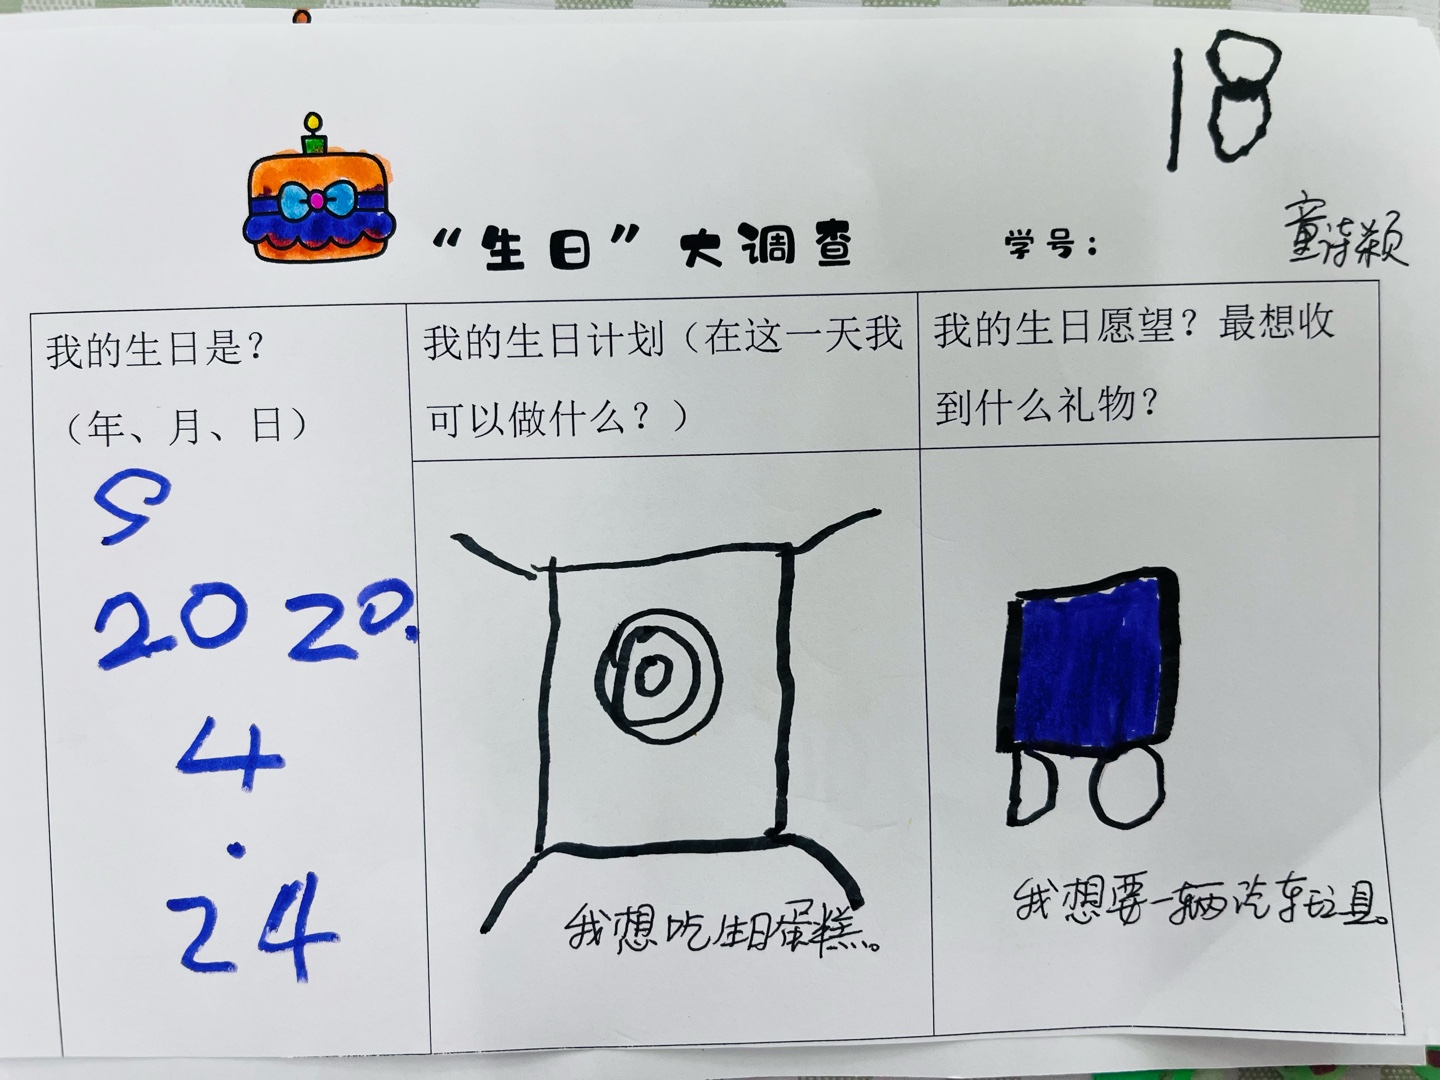 18
“生日”大调查 学号：
童诗颖
我的生日是？
（年、月、日）
2020.
4
.
24
我的生日计划（在这一天我
可以做什么？）
我想吃生日蛋糕。
我的生日愿望？最想收
到什么礼物？
我想要一辆汽车玩具。